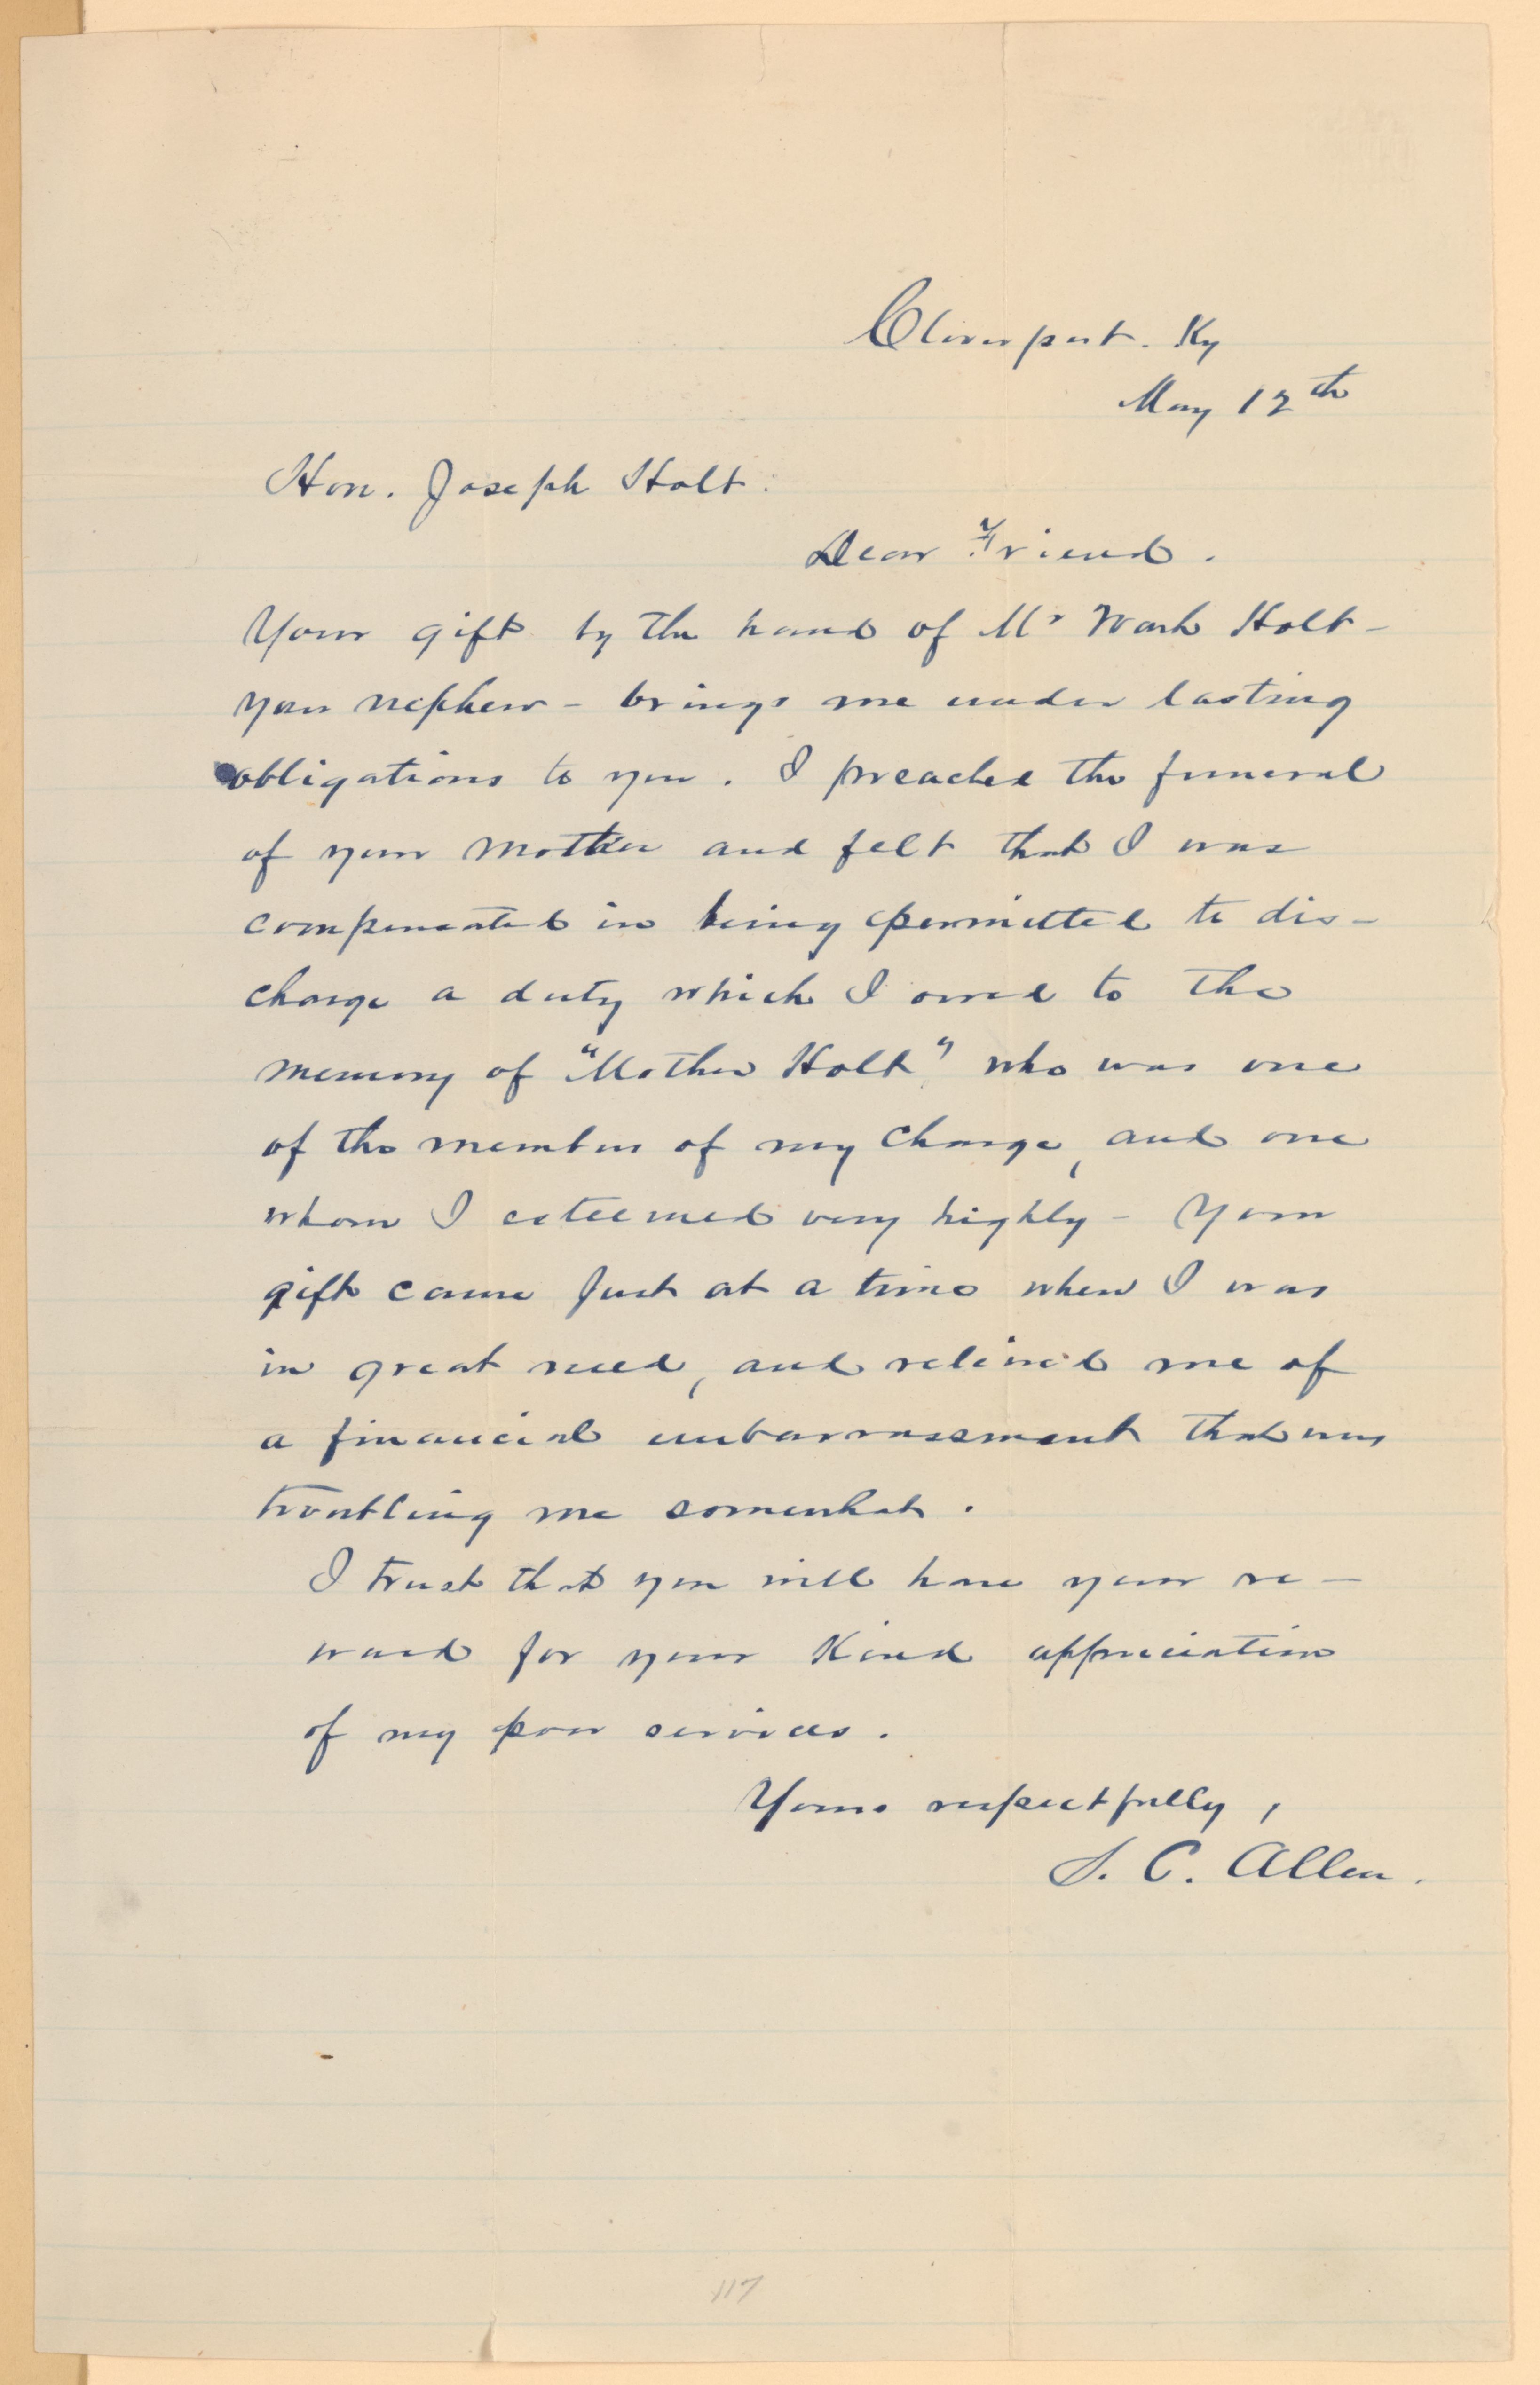 Cloverport. Ky
May 12th
Hon. Joseph Holt:
Dear Friend.
Your gift by the hand of Mr Wash Holt -
your nephew - brings me under lasting
obligations to you. I preached the funeral
of your mother and felt that I was
compensated in being permitted to dis-
charge a duty which I owed to the
memory of "Mother Holt" who was one
of the members of my charge, and one
whom I esteemed very highly - Your
gift came just at a time when I was
in great need, and relieved me of
a financial embarrassment that was
troubling me somewhat.
I trust that you will have your re-
ward for your kind appreciation
of my poor services.
Yours respectfully,
S. C. Allen.
117